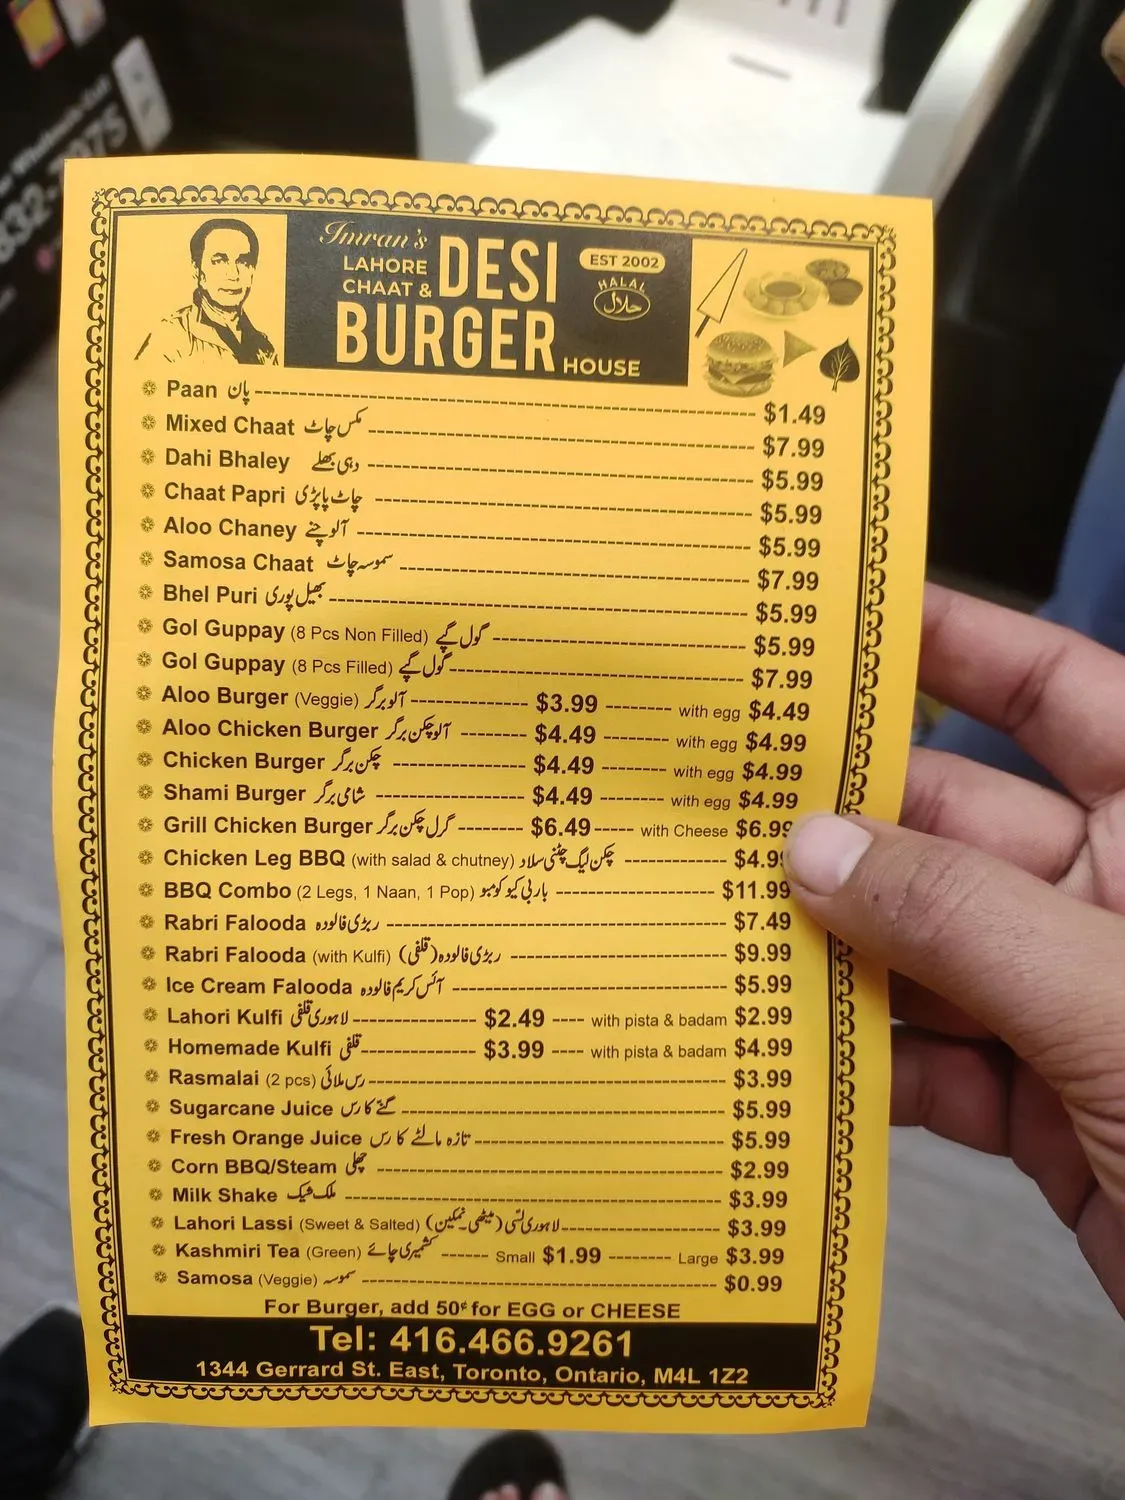 Imran's
LAHORE
CHAAT &
DESI
BURGER
HOUSE
EST 2002
HALAL
حلال
Paan پان $1.49
Mixed Chaat مکس چاٹ $7.99
Dahi Bhaley دہی بھلے $5.99
Chaat Papri چاٹ پاپڑی $5.99
Aloo Chaney آلو چنے $5.99
Samosa Chaat سموسہ چاٹ $7.99
Bhel Puri بھیل پوری $5.99
Gol Guppay (8 Pcs Non Filled) گول گپے $5.99
Gol Guppay (8 Pcs Filled) گول گپے $7.99
Aloo Burger (Veggie) آلو برگر $3.99 with egg $4.49
Aloo Chicken Burger آلو چکن برگر $4.49 with egg $4.99
Chicken Burger چکن برگر $4.49 with egg $4.99
Shami Burger شامی برگر $4.49 with egg $4.99
Grill Chicken Burger گرل چکن برگر $6.49 with Cheese $6.99
Chicken Leg BBQ (with salad & chutney) چکن لیگ چٹنی سلاد $4.99
BBQ Combo (2 Legs, 1 Naan, 1 Pop) باربی کیو کومبو $11.99
Rabri Falooda ربڑی فالودہ $7.49
Rabri Falooda (with Kulfi) ربڑی فالودہ (قلفی) $9.99
Ice Cream Falooda آئس کریم فالودہ $5.99
Lahori Kulfi لاہوری قلفی $2.49 with pista & badam $2.99
Homemade Kulfi قلفی $3.99 with pista & badam $4.99
Rasmalai (2 pcs) رس ملائی $3.99
Sugarcane Juice گنے کا رس $5.99
Fresh Orange Juice تازہ مالٹے کا رس $5.99
Corn BBQ/Steam چھلی $2.99
Milk Shake ملک شیک $3.99
Lahori Lassi (Sweet & Salted) لاہوری لسی (میٹھی۔نمکین) $3.99
Kashmiri Tea (Green) کشمیری چائے Small $1.99 Large $3.99
Samosa (Veggie) سموسہ $0.99
For Burger, add 50¢ for EGG or CHEESE
Tel: 416.466.9261
1344 Gerrard St. East, Toronto, Ontario, M4L 1Z2